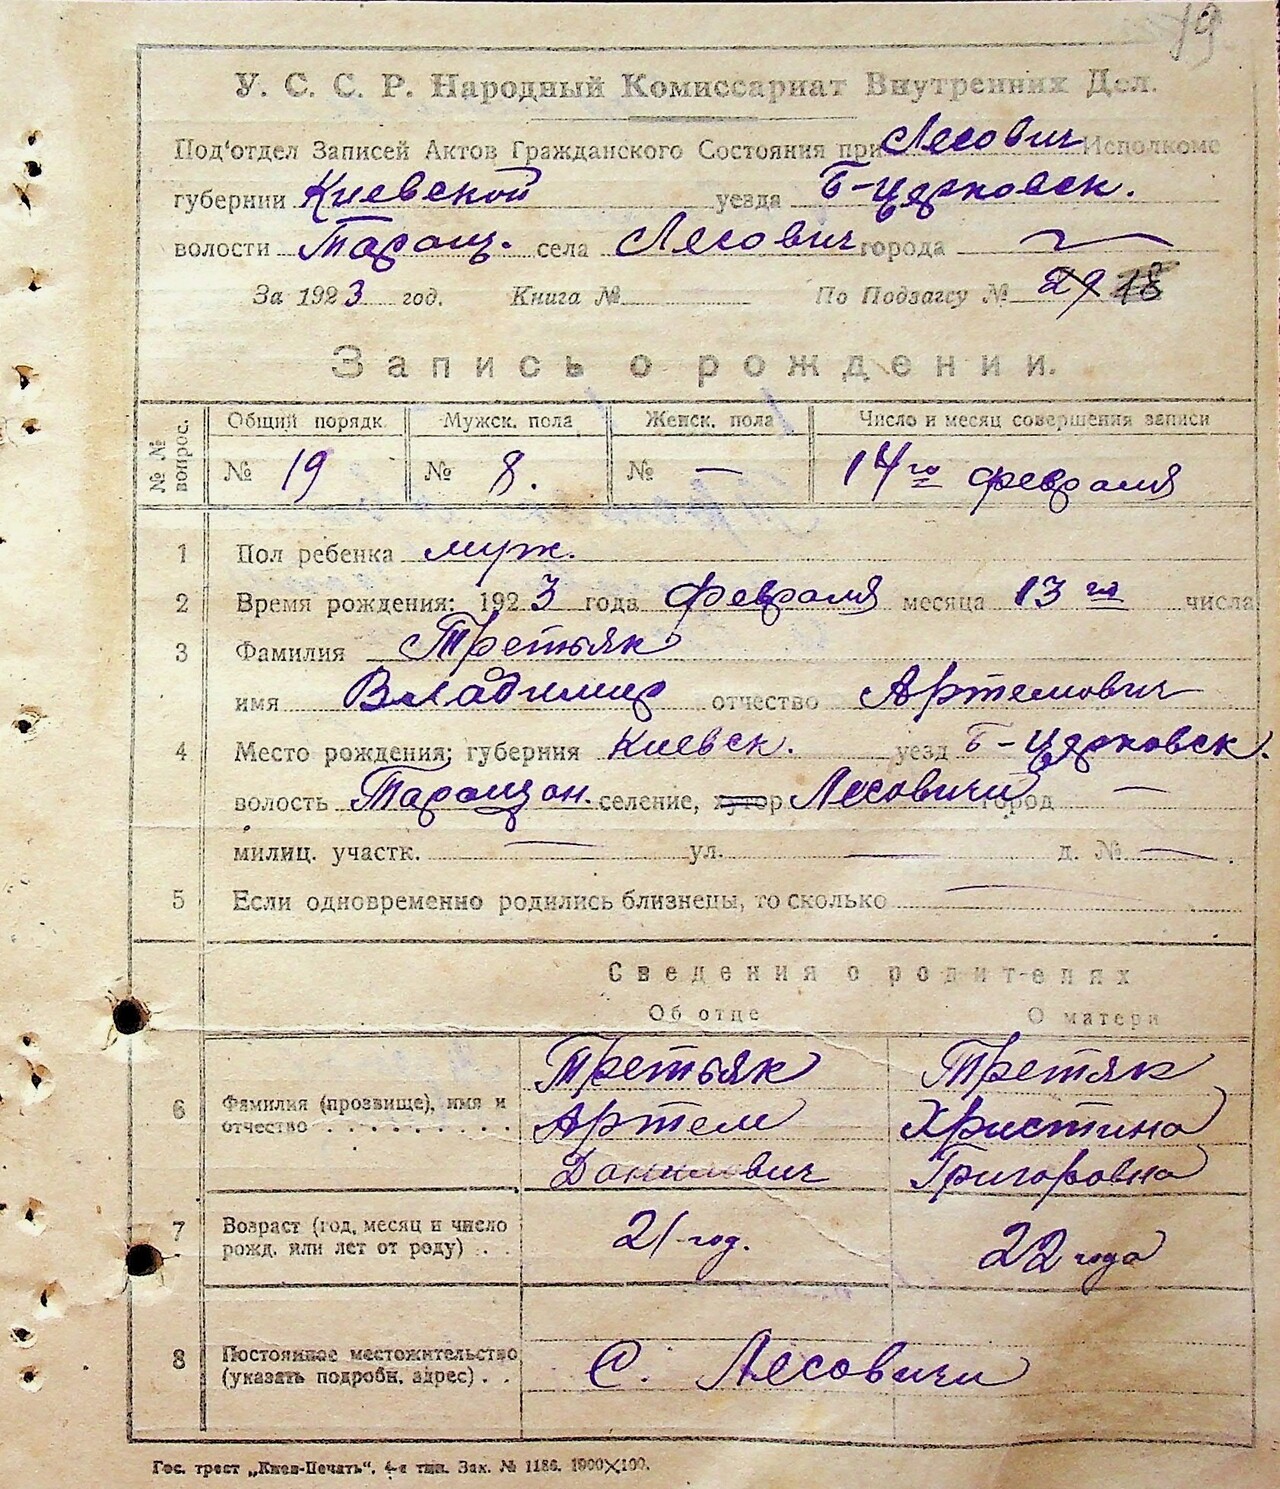 19
У. С. С. Р. Народный Комиссариат Внутренних Дел.
Под'отдел Записей Актов Гражданского Состояния при Лесович Исполкоме
губернии Киевской уезда Б-Церковск.
волости Таращ. села Лесович города —
За 1923 год. Книга № По Подзагсу № 29 18
Запись о рождении.
№ № вопрос. Общий порядк. Мужск. пола Женск. пола Число и месяц совершения записи
№ 19 № 8. № — 14го февраля
1 Пол ребенка муж.
2 Время рождения: 1923 года февраля месяца 13го числа
3 Фамилия Третьяк
имя Владимир отчество Артемович
4 Место рождения; губерния Киевск. уезд Б-Церковск.
волость Таращан. селение, хутор Лесовичи город —
милиц. участк. — ул. — д. № — .
5 Если одновременно родились близнецы, то сколько —
Сведения о родителях
Об отце О матери
Третьяк Третяк
6 Фамилия (прозвище), имя и отчество . . . . . . . . . Артем Христина
Данилович Григоровна
7 Возраст (год, месяц и число рожд. или лет от роду) . . 21 год. 22 года
8 Постоянное местожительство (указать подробн. адрес) . . С. Лесовичи
Гос. трест „Киев-Печать“. 4-я тип. Зак. № 1186. 1000×100.